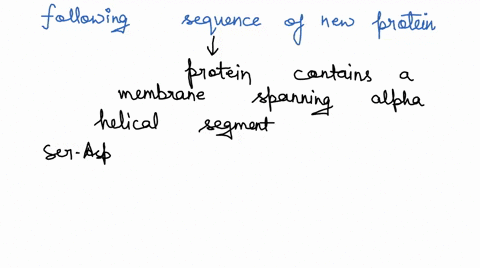 following sequence of new protein
protein contains a
membrane spanning alpha
helical segment
Ser-Asp